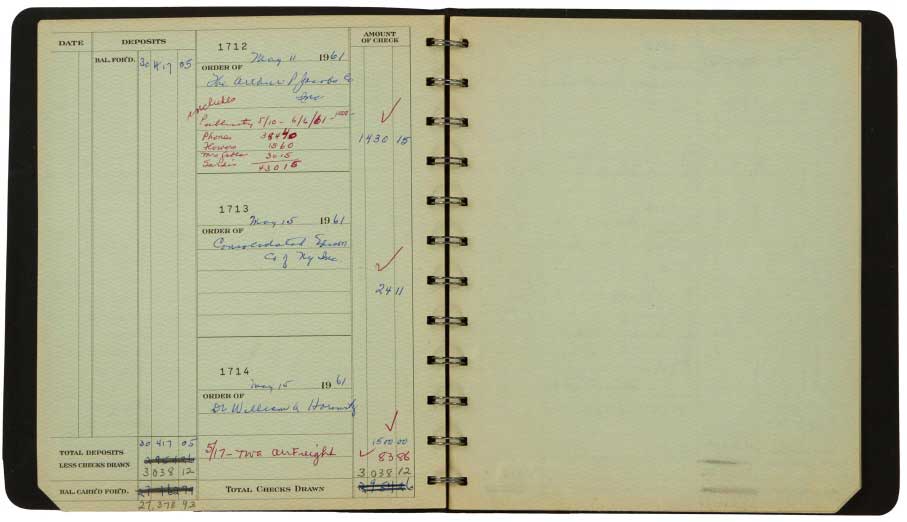 DATE DEPOSITS AMOUNT OF CHECK
BAL. FOR'D. 30 417 05
1712
May 11 1961
ORDER OF
The Arthur P Jacobs Co
Inc
includes
Publicity 5/10 - 6/6/61 - 1000 -
Phones 384 40
Flowers 15 60
Mrs Gable 30 15
Sardis
430 15
1430 15
1713
May 15 1961
ORDER OF
Consolidated
Co of Ny Inc.
24 11
1714
May 15 1961
ORDER OF
Dr William A Horwitz
1500 00
TOTAL DEPOSITS 30 417 05
5/17 - TWA air Freight 83 86
LESS CHECKS DRAWN
3 038 12
3 038 12
BAL. CARR'D FOR'D.
TOTAL CHECKS DRAWN
27, 378 93